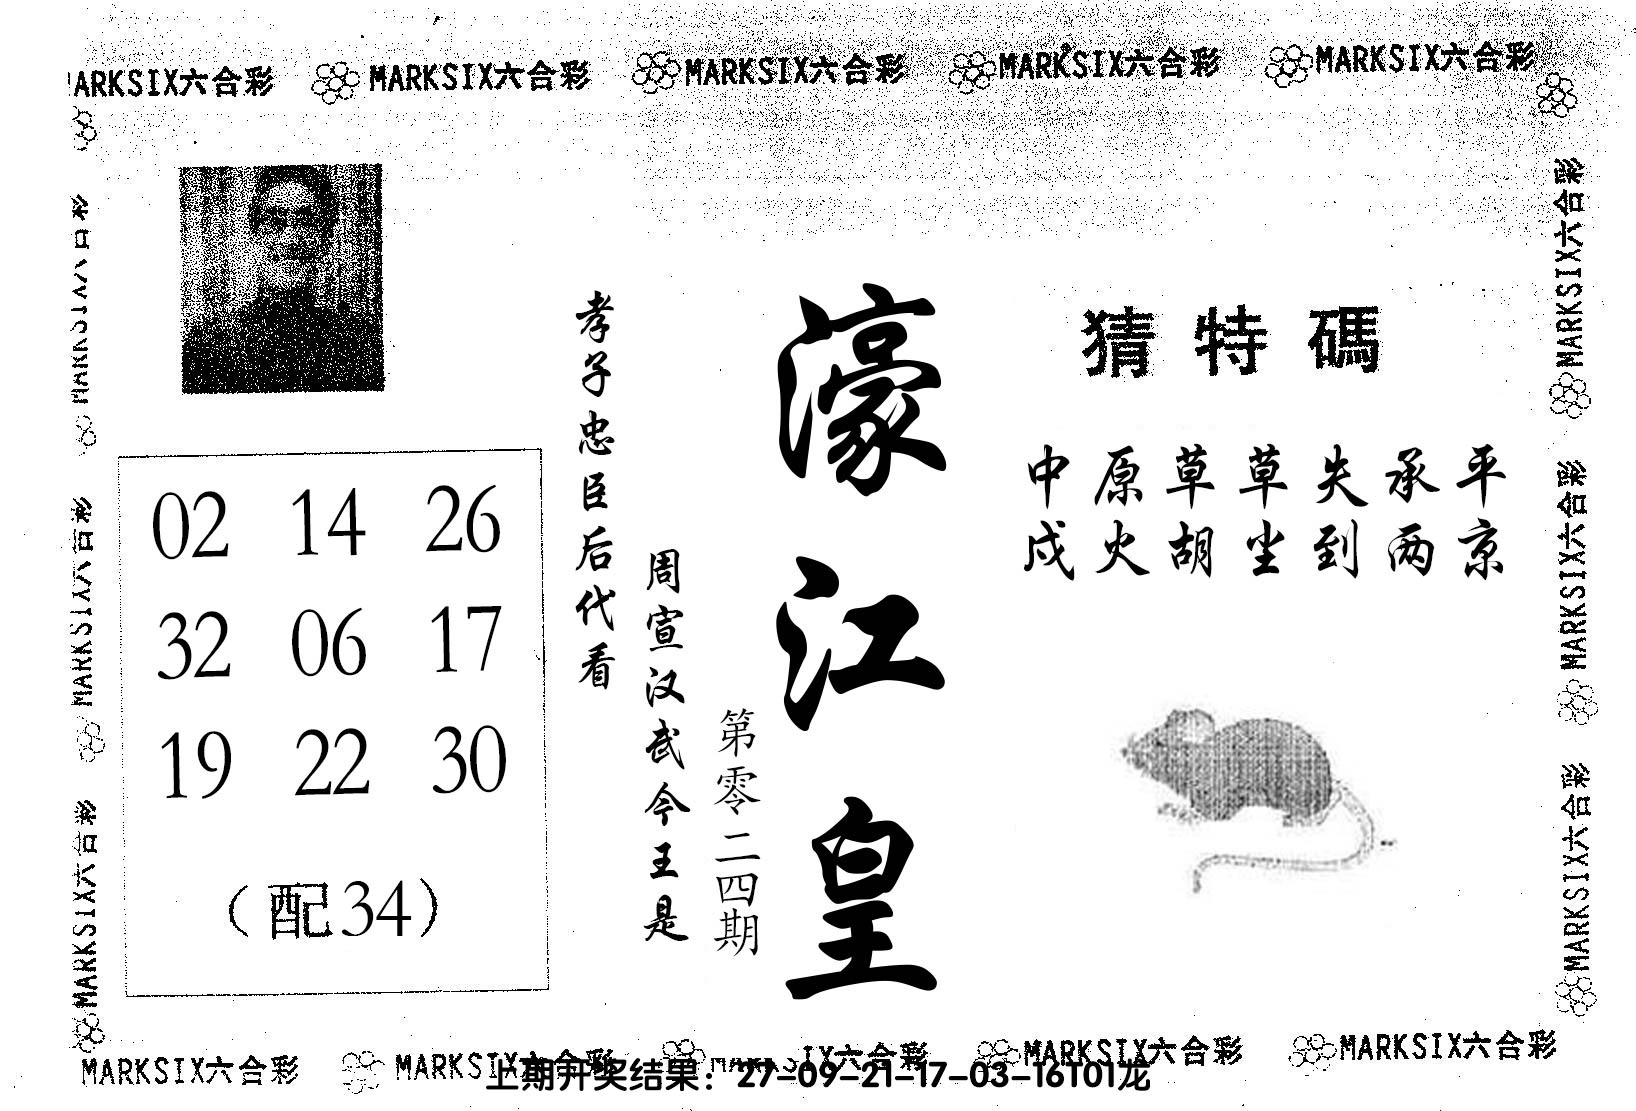 MARKSIX六合彩 MARKSIX六合彩 MARKSIX六合彩 MARKSIX六合彩 MARKSIX六合彩
MARKSIX六合彩
MARKSIX六合彩
MARKSIX六合彩
MARKSIX六合彩
MARKSIX六合彩
MARKSIX六合彩
02 14 26
32 06 17
19 22 30
（配34）
孝子忠臣后代看
周宣汉武今王是
第零二四期
濠江皇
猜特碼
中原草草失承平
戍火胡尘到两京
MARKSIX六合彩 MARKSIX六合彩 MARKSIX六合彩 MARKSIX六合彩 MARKSIX六合彩
上期开奖结果：27-09-21-17-03-16T01龙